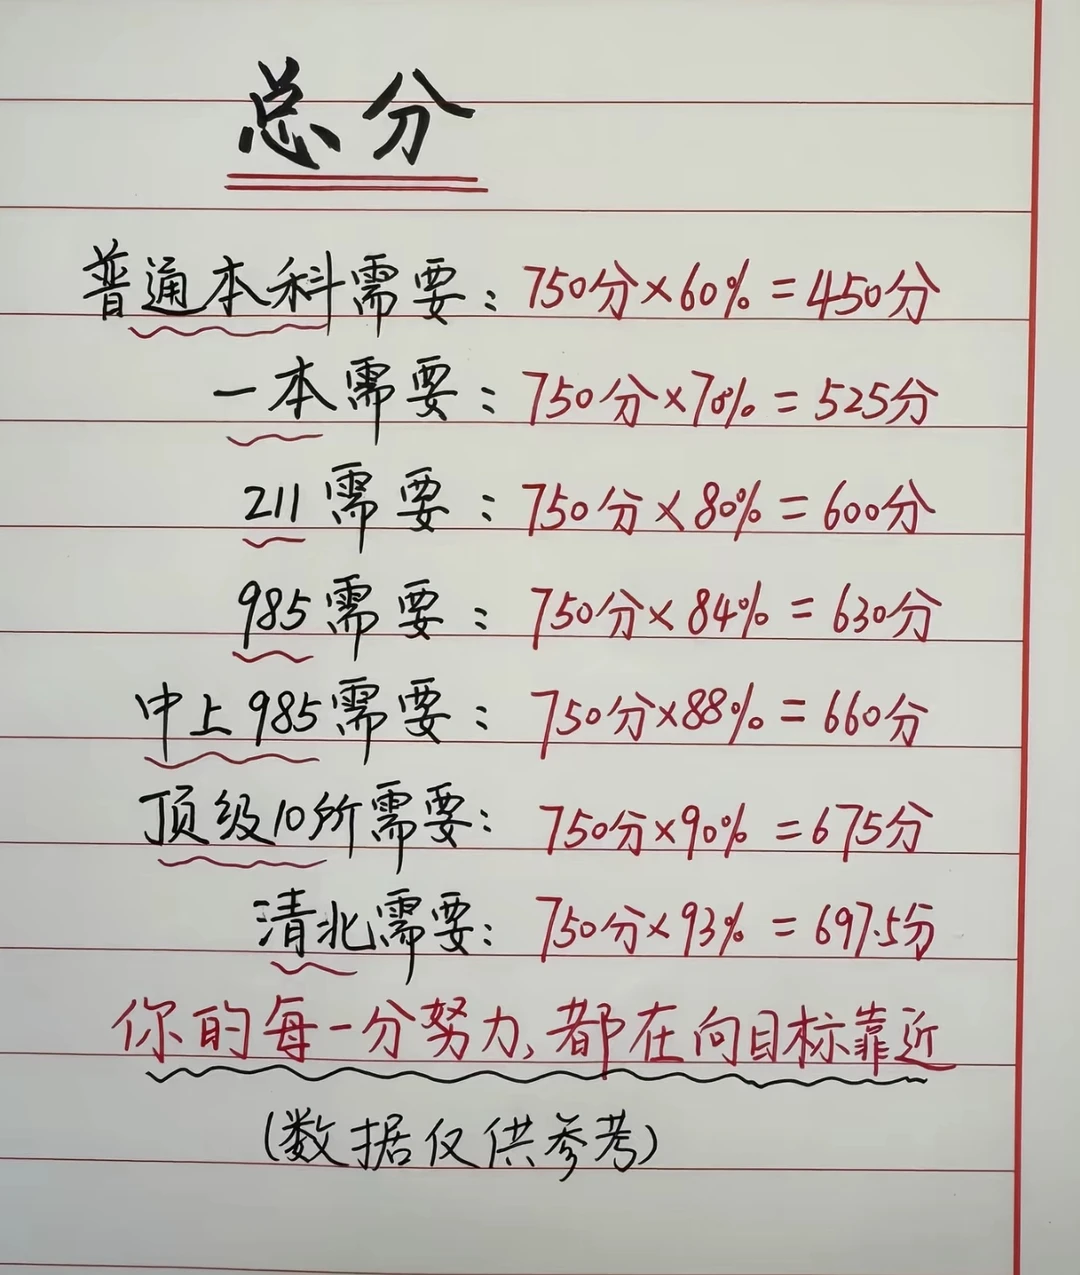 总分
普通本科需要：750分×60%=450分
一本需要：750分×70%=525分
211需要：750分×80%=600分
985需要：750分×84%=630分
中上985需要：750分×88%=660分
顶级10所需要：750分×90%=675分
清北需要：750分×93%=697.5分
你的每一分努力，都在向目标靠近
（数据仅供参考）